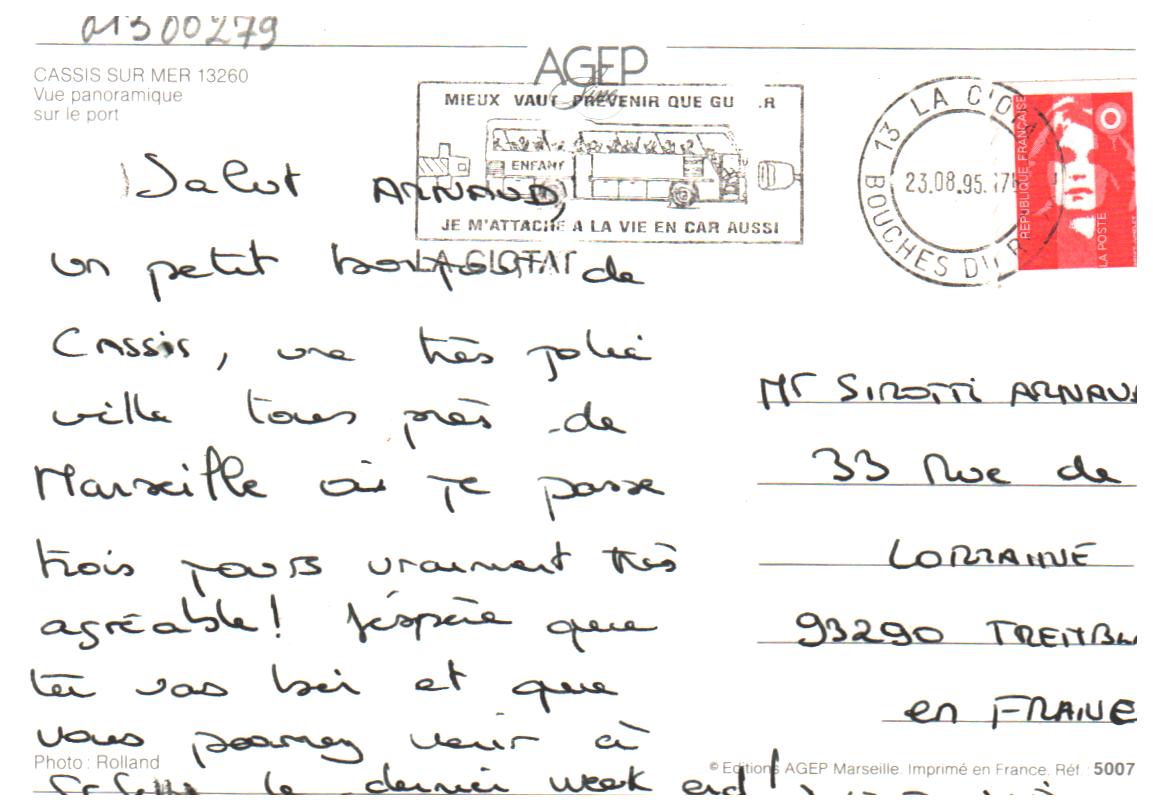 01300279
AGEP
CASSIS SUR MER 13260
Vue panoramique
sur le port
MIEUX VAUT PRÉVENIR QUE GU .R
ENFANT
JE M'ATTACHE A LA VIE EN CAR AUSSI
LA CIOTAT
13 LA CIO
23.08.95.17
BOUCHES DU R
RÉPUBLIQUE FRANÇAISE
LA POSTE
Salut ARNAUD,
un petit bonjour de
CASSIS, une très jolie
ville tous près de
Marseille où je passe
trois jours vraiment très
agréable! J'espère que
tu vas bei et que
vous pourrez venir à
le dernier week end!
Mr SIROTTI ARNAU
33 Rue de
LORRAINE
93290 TREMBL
en FRANCE
Photo : Rolland
© Editions AGEP Marseille. Imprimé en France. Réf. : 5007